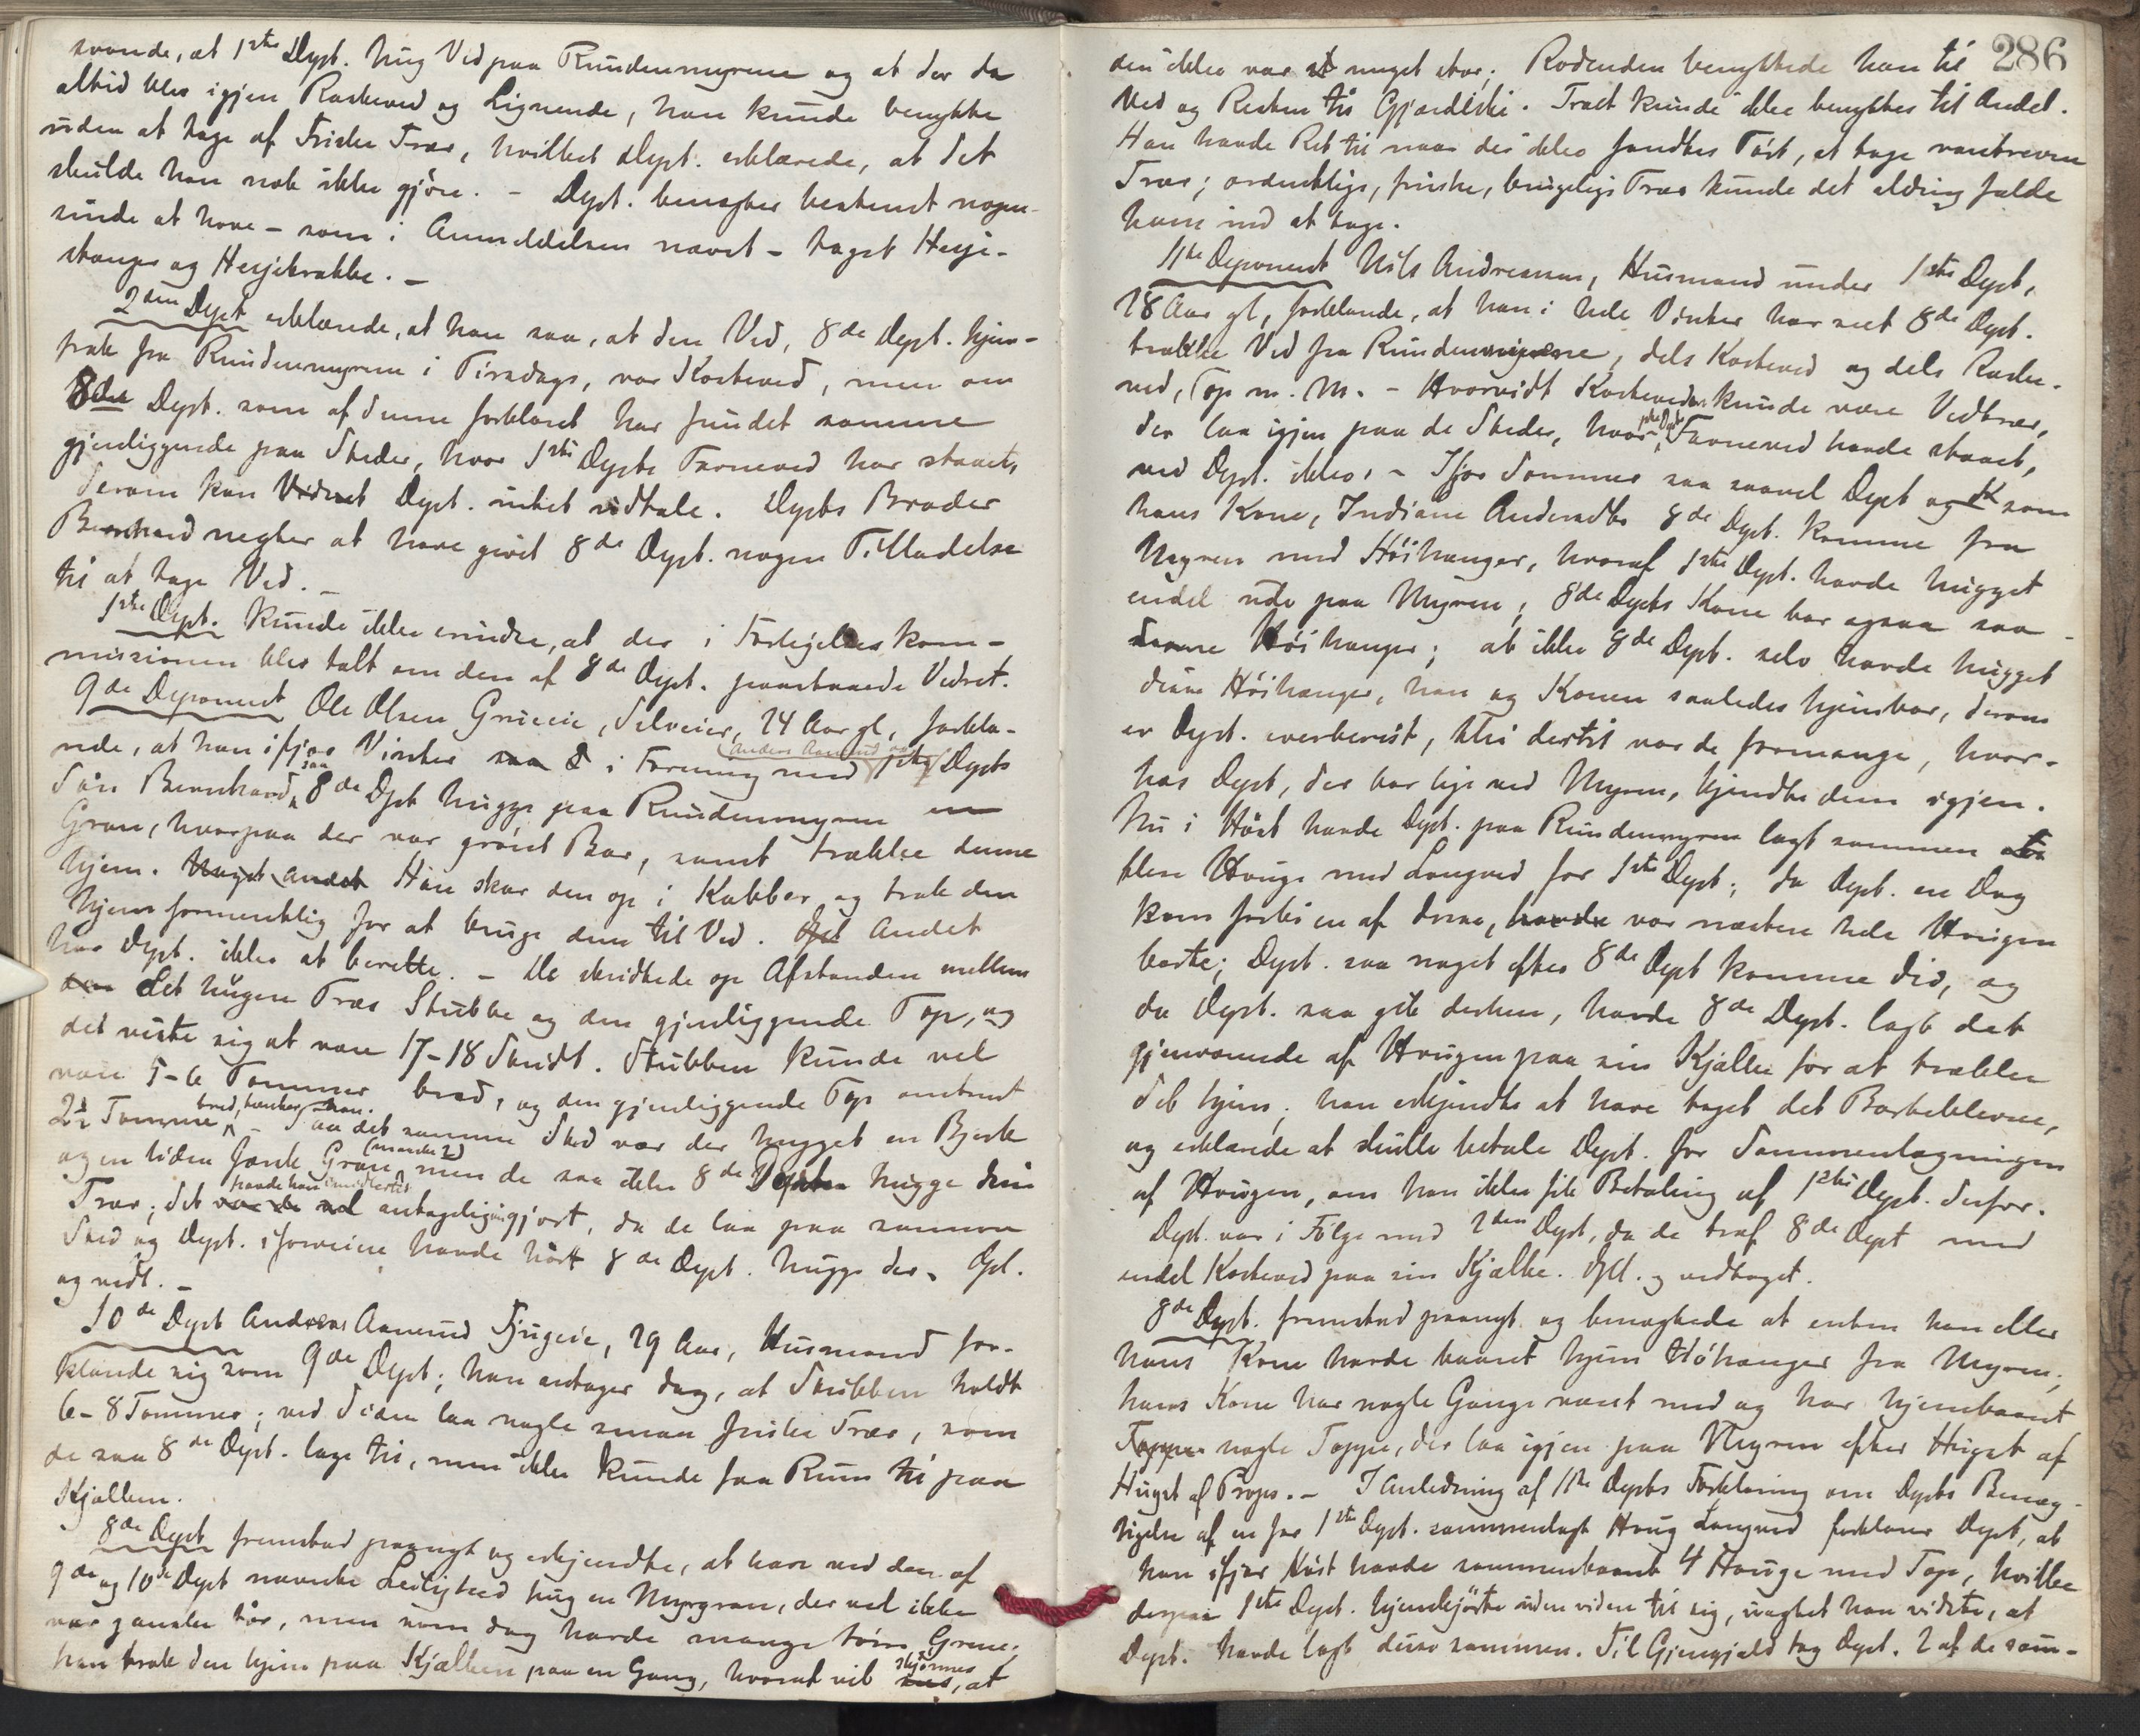 svarede, at 1ste Dept. hug Ved paa Rundemyrene og at der da
altid blev igjen Raskeved og Lignende, han kunde benytte
uden at tage af Friske Trær, hvilket Dept. erklærede, at det
skulde han nok ikke gjöre. - Dept. benegter bestemt nogen-
sinde at have - som i Anmeldelsen nævnt - taget Hesje-
stænger og Hesjekrakke. -
2den Dept erklærede, at han saa, at den Ved, 8de Dept. hjem-
trak fra Rundemyrene i Tirsdags, var Kosteved, men om
8de Dept. som af denne forklaret har fundet samme
gjenliggende paa Steder, hvor 1ste Depts Favneved har staaet,
derom kan Dept. intet udtale. Depts Broder
Bernhard negter at have givet 8de Dept. nogen Tilladelse
til at tage Ved. -
1ste Dept. kunde ikke erindre, at der i Forligelseskom-
missionen blev talt om den af 8de Dept. paastaaede Vedret.
9de Deponent Ole Olsen Grueeie, Selveier, 24 Aar gl, forkla-
rede, at han ifjor Vinter i Forening med (Anders Aamund og) 1ste Depts
Sön Bernhard, saa 8de Dpt hugge paa Rundemyrene en
Gran, hvorpaa der var grönt Bar, samt trække denne
hjem. Han skar den op i Kubber og trak den
hjem formentlig for at bruge den til Ved. Andet
har Dept. ikke at berette. - De skridtede op Afstanden mellem
det hugne Træs Stubbe og den gjenliggende Top, og
det viste sig at være 17-18 Skridt. Stubben kunde vel
være 5-6 Tommer bred, og den gjenliggende Top omtrent
2½ Tomme bred, tænker han. - Paa det samme Sted var der hugget en Bjerk
og en liden frisk Gran (maaske 2), men de saa ikke 8de Dept hugge disse
Trær; det havde han imidlertid antagelig gjort, da de laa paa samme
Sted og Dept. iforveien havde hört 8de Dept. hugge der. Opl.
og vedt. -
10de Dept Andreas Aamund Fjugeie, 29 Aar, Husmand for-
klarede sig som 9de Dept; han antager dog, at Stubben holdt
6-8 Tommer; ved Siden laa nogle smaa friske Trær, som
de saa 8de Dept. lage til, men ikke kunde faa Rum til paa
Kjælken.
8de Dept fremstod paanyt og erkjendte, at have ved den af
9de og 10de Dept nævnte Leilighed hug en Myrgran, der vel ikke
var ganske tör, men som dog havde mange törre Grene;
han trak den hjem paa Kjælken paa en Gang, hvoraf vil skjönnes, at
286
den ikke var noget stor. Rodenden benyttede han til
Ved og Resten til Gjærdeski. Træet kunde ikke benyttes til Andet.
Han havde Ret til naar der ikke fandtes Tört, at tage vantrevne
Trær; ordentlige, friske, brugelige Trær kunde det aldrig falde
ham ind at tage.
11te Deponent Nils Andreassen, Husmand under 1ste Dept,
28 Aar gl, forklarede, at han i hele Vinter har seet 8de Dept.
trække Ved fra Rundemyrene, dels Kosteved og dels Raske-
ved, Top m. M. - Hvorvidt Kosteveden kunde være Vedtrær,
der laa igjen paa de Steder, hvor 1ste Depts Favneved havde staaet,
ved Dept. ikke. - Ifjor Sommer saa saavel Dept som
hans Kone, Indiane Andersdtr 8de Dept. komme fra
Myren med Höihænger, hvoraf 1ste Dept. havde hugget
endel ude paa Myren; 8de Depts Kone bar ogsaa saa-
danne Höihænger; at ikke 8de Dept. selv havde hugget
disse Höihænger, han og Konen saaledes hjembar, derom
er Dept. overbevist, thi dertil var de formange, hvor-
hos Dept, der bor lige ved Myren, kjendte dem igjen.
Nu i Höst havde Dept. paa Rundemyrene lagt sammen
flere Hauge med Langved for 1ste Dept; da Dept. en Dag
kom forbi en af disse, var næsten hele Haugen
borte; Dept. saa noget efter 8de Dept komme did, og
da Dept. saa gik derhen, havde 8de Dept. lagt det
gjenværende af Haugen paa sin Kjælke for at trække
det hjem; han erkjendte at have taget det Bortblevne,
og erklærede at skulle betale Dept. for Sammenlægningen
af Haugen, om han ikke fik Betaling af 1ste Dept. derfor.
Dept. var i Fölge med 2den Dept, da de traf 8de Dept med
endel Kosteved paa sin Kjælke. Opl. og vedtaget.
8de Dept. fremstod paanyt og benegtede at enten han eller
hans Kone havde baaret hjem Höhænger fra Myren;
hans Kone har nogle Gange været med og har hjembaaret
nogle Toppe, der laa igjen paa Myren efter Huget af
Huget af Props. - I Anledning af 11te Depts Forklaring om Depts Benæg-
tigelse af en for 1ste Dept. sammenlagt Haug Langved forklarer Dept, at
han ifjor Höst havde sammenbaaret 4 Hauge med Top, hvilke
1ste Dept. hjemkjörte uden videre til sig, uagtet han vidste, at
Dept. havde lagt disse sammen. Til Gjengjæld tog Dept. 2 af de sam-